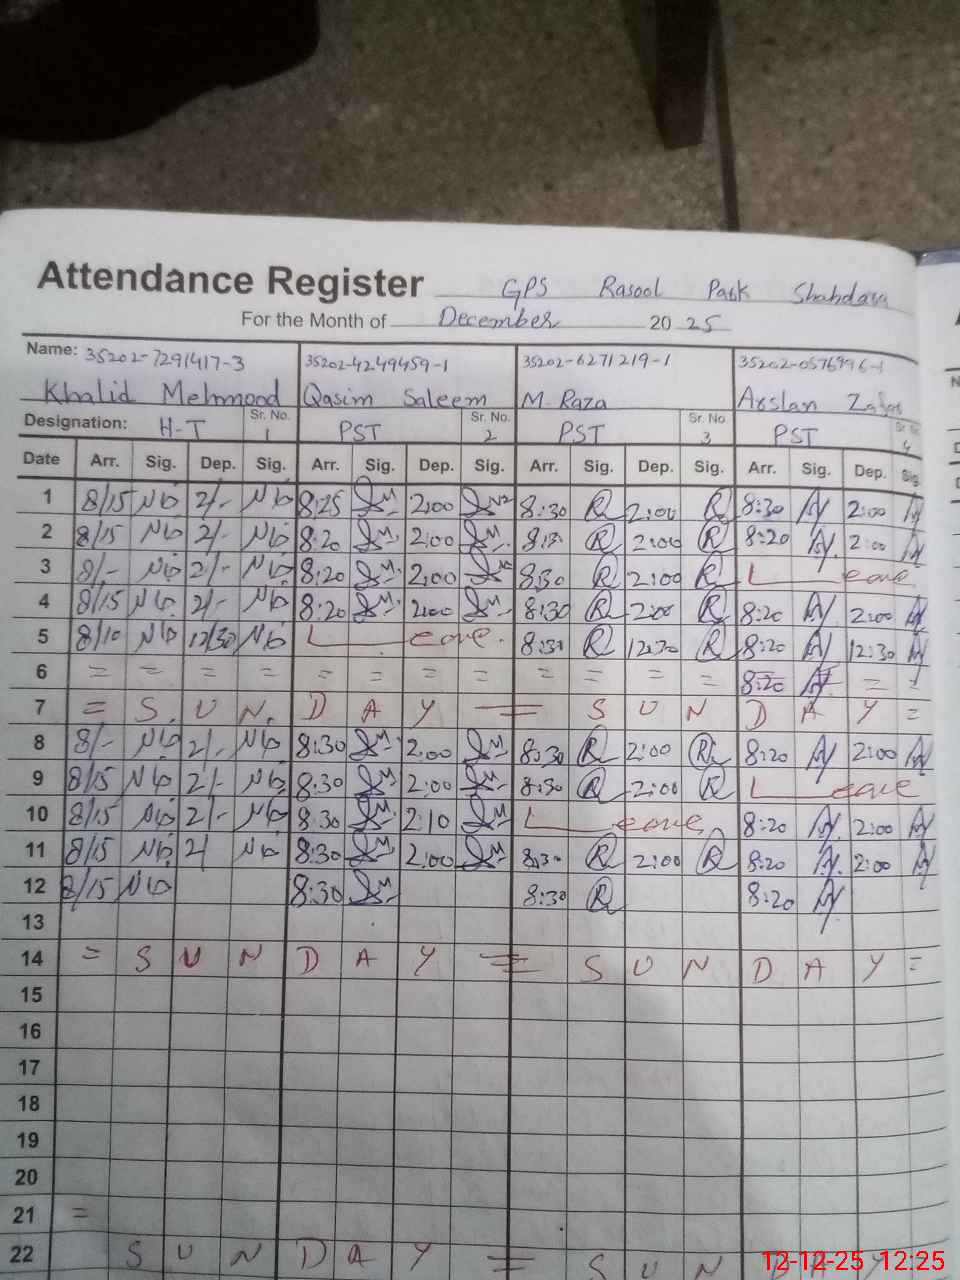 Attendance Register GPS Rasool Park Shahdara
For the Month of December 2025
Name: 35202-7291417-3 35202-4249459-1 35202-6271219-1
Khalid Mehmood Qasim Saleem M. Raza Arslan Zafar
Designation: H-T Sr. No. 1 PST Sr. No. 2 PST Sr. No. 3 PST Sr. No. 4
Date Arr. Sig. Dep. Sig. Arr. Sig. Dep. Sig. Arr. Sig. Dep. Sig. Arr. Sig. Dep. Sig.
1 8/15 2/- 8:25 2:00 8:30 R 2:00 R 8:30 2:00
2 8/15 2/- 8:20 2:00 R 2:00 R 8:20 2:00
3 8/- 2/- 8:20 2:00 8:30 R 2:00 R Leave
4 8/15 2/- 8:20 2:00 8:30 R 2:00 R 8:20 2:00
5 8/10 12/30 Leave. 8:30 R 12:30 R 8:20 12:30
6 = = = = = = = = = = = = 8:20 = =
7 = S U N D A Y = S U N D A Y =
8 8/- 2/- 8:30 2:00 8:30 R 2:00 R 8:20 2:00
9 8/15 2/- 8:30 2:00 8:30 R 2:00 R Leave
10 8/15 2/- 8:30 2:10 Leave 8:20 2:00
11 8/15 2/ 8:30 2:00 8:30 R 2:00 R 8:20 2:00
12 8/15 8:30 8:30 R 8:20
13
14 = S U N D A Y = S U N D A Y =
15
16
17
18
19
20
21 =
22 S U N D A Y = S U N D A Y
12-12-25 12:25